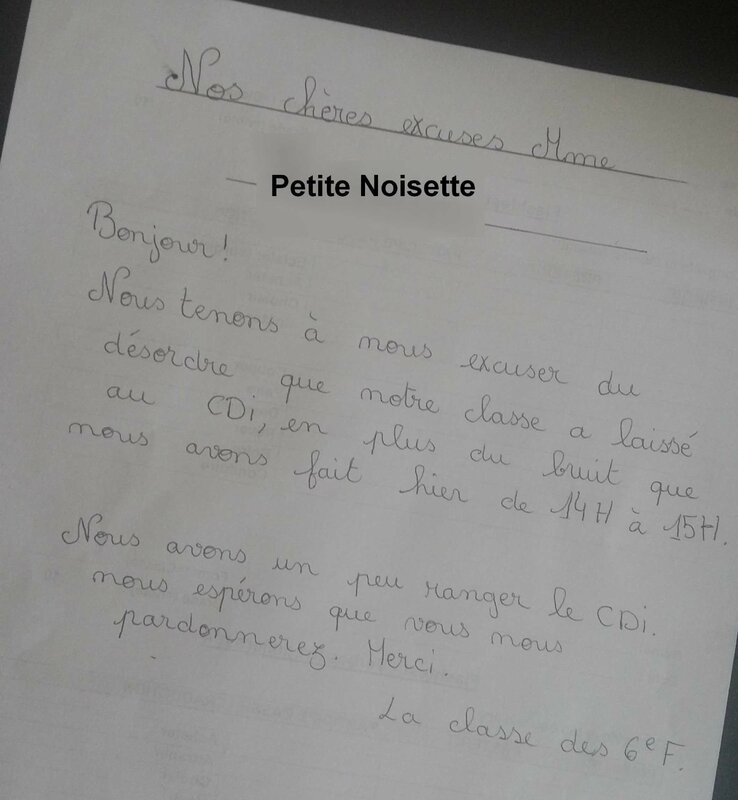 Nos chères excuses Mme
Petite Noisette
Bonjour!
Nous tenons à nous excuser du
désordre que notre classe a laissé
au CDi, en plus du bruit que
nous avons fait hier de 14H à 15H.
Nous avons un peu ranger le CDi.
nous espérons que vous nous
pardonnerez. Merci.
La classe des 6e F.